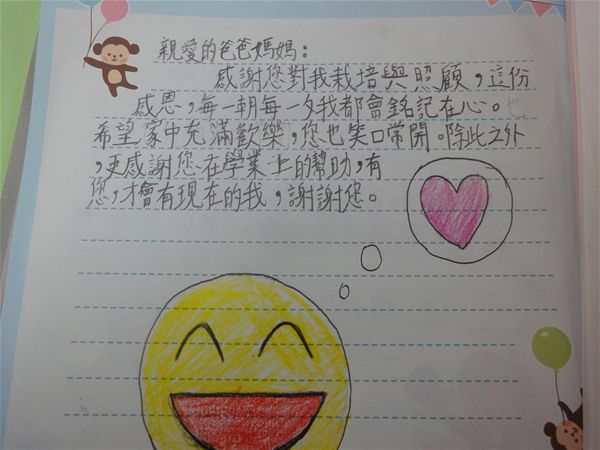 親愛的爸爸媽媽：
感謝您對我栽培與照顧，這份
感恩，每一朝每一夕我都會銘記在心。也
希望家中充滿歡樂，您也笑口常開。除此之外
，更感謝您在學業上的幫助，有
您，才會有現在的我，謝謝您。